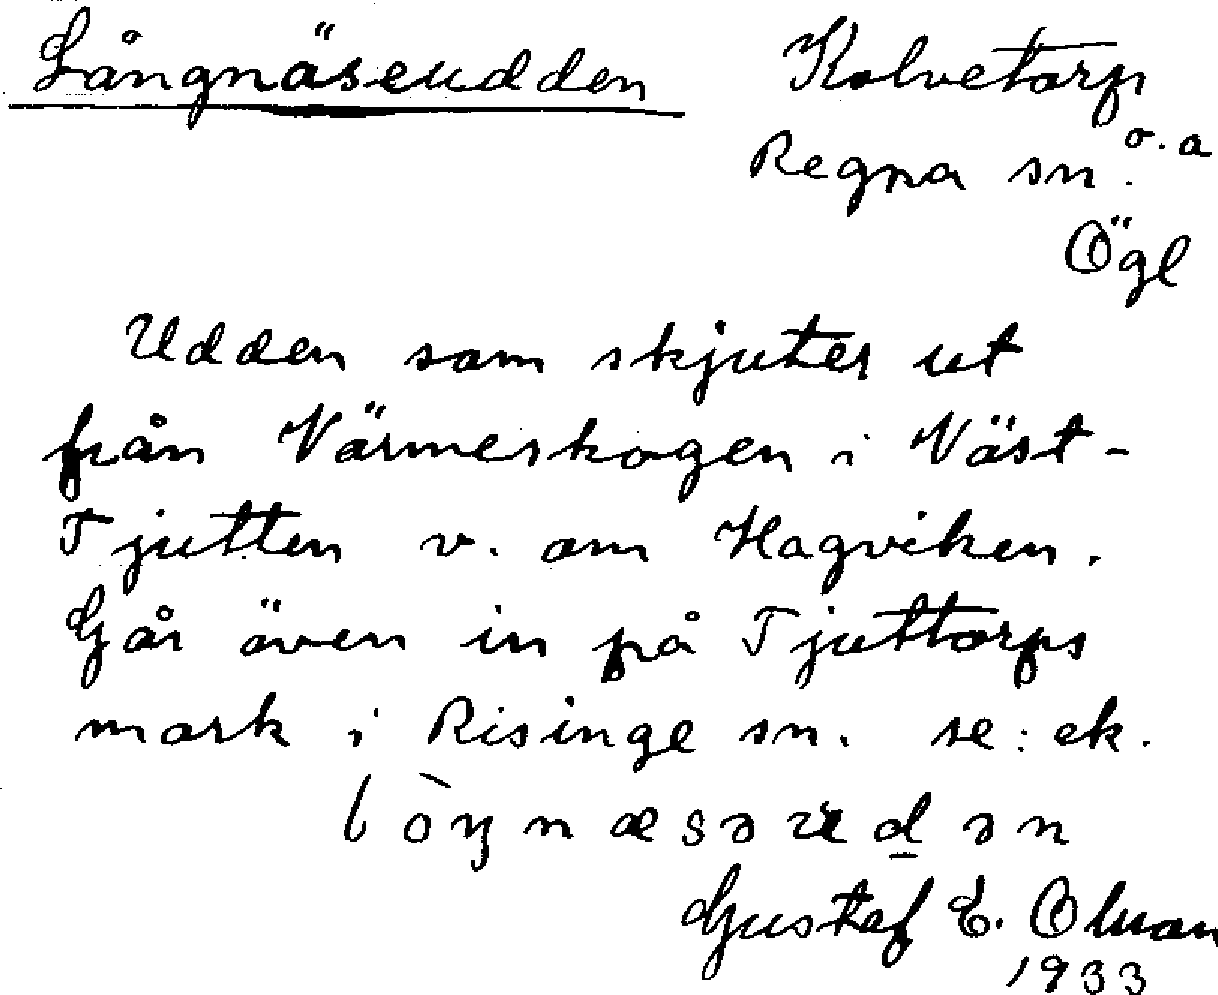 Långnäseudden
Kolvetorp
Regna sn. o.a
Ögl
Udden som skjuter ut
från Värmeskogen i Väst-
Tjutten v. om Hagviken.
Går även in på Tjuttorps
mark i Risinge sn. se: ek.
Gustaf E. Olson
1933